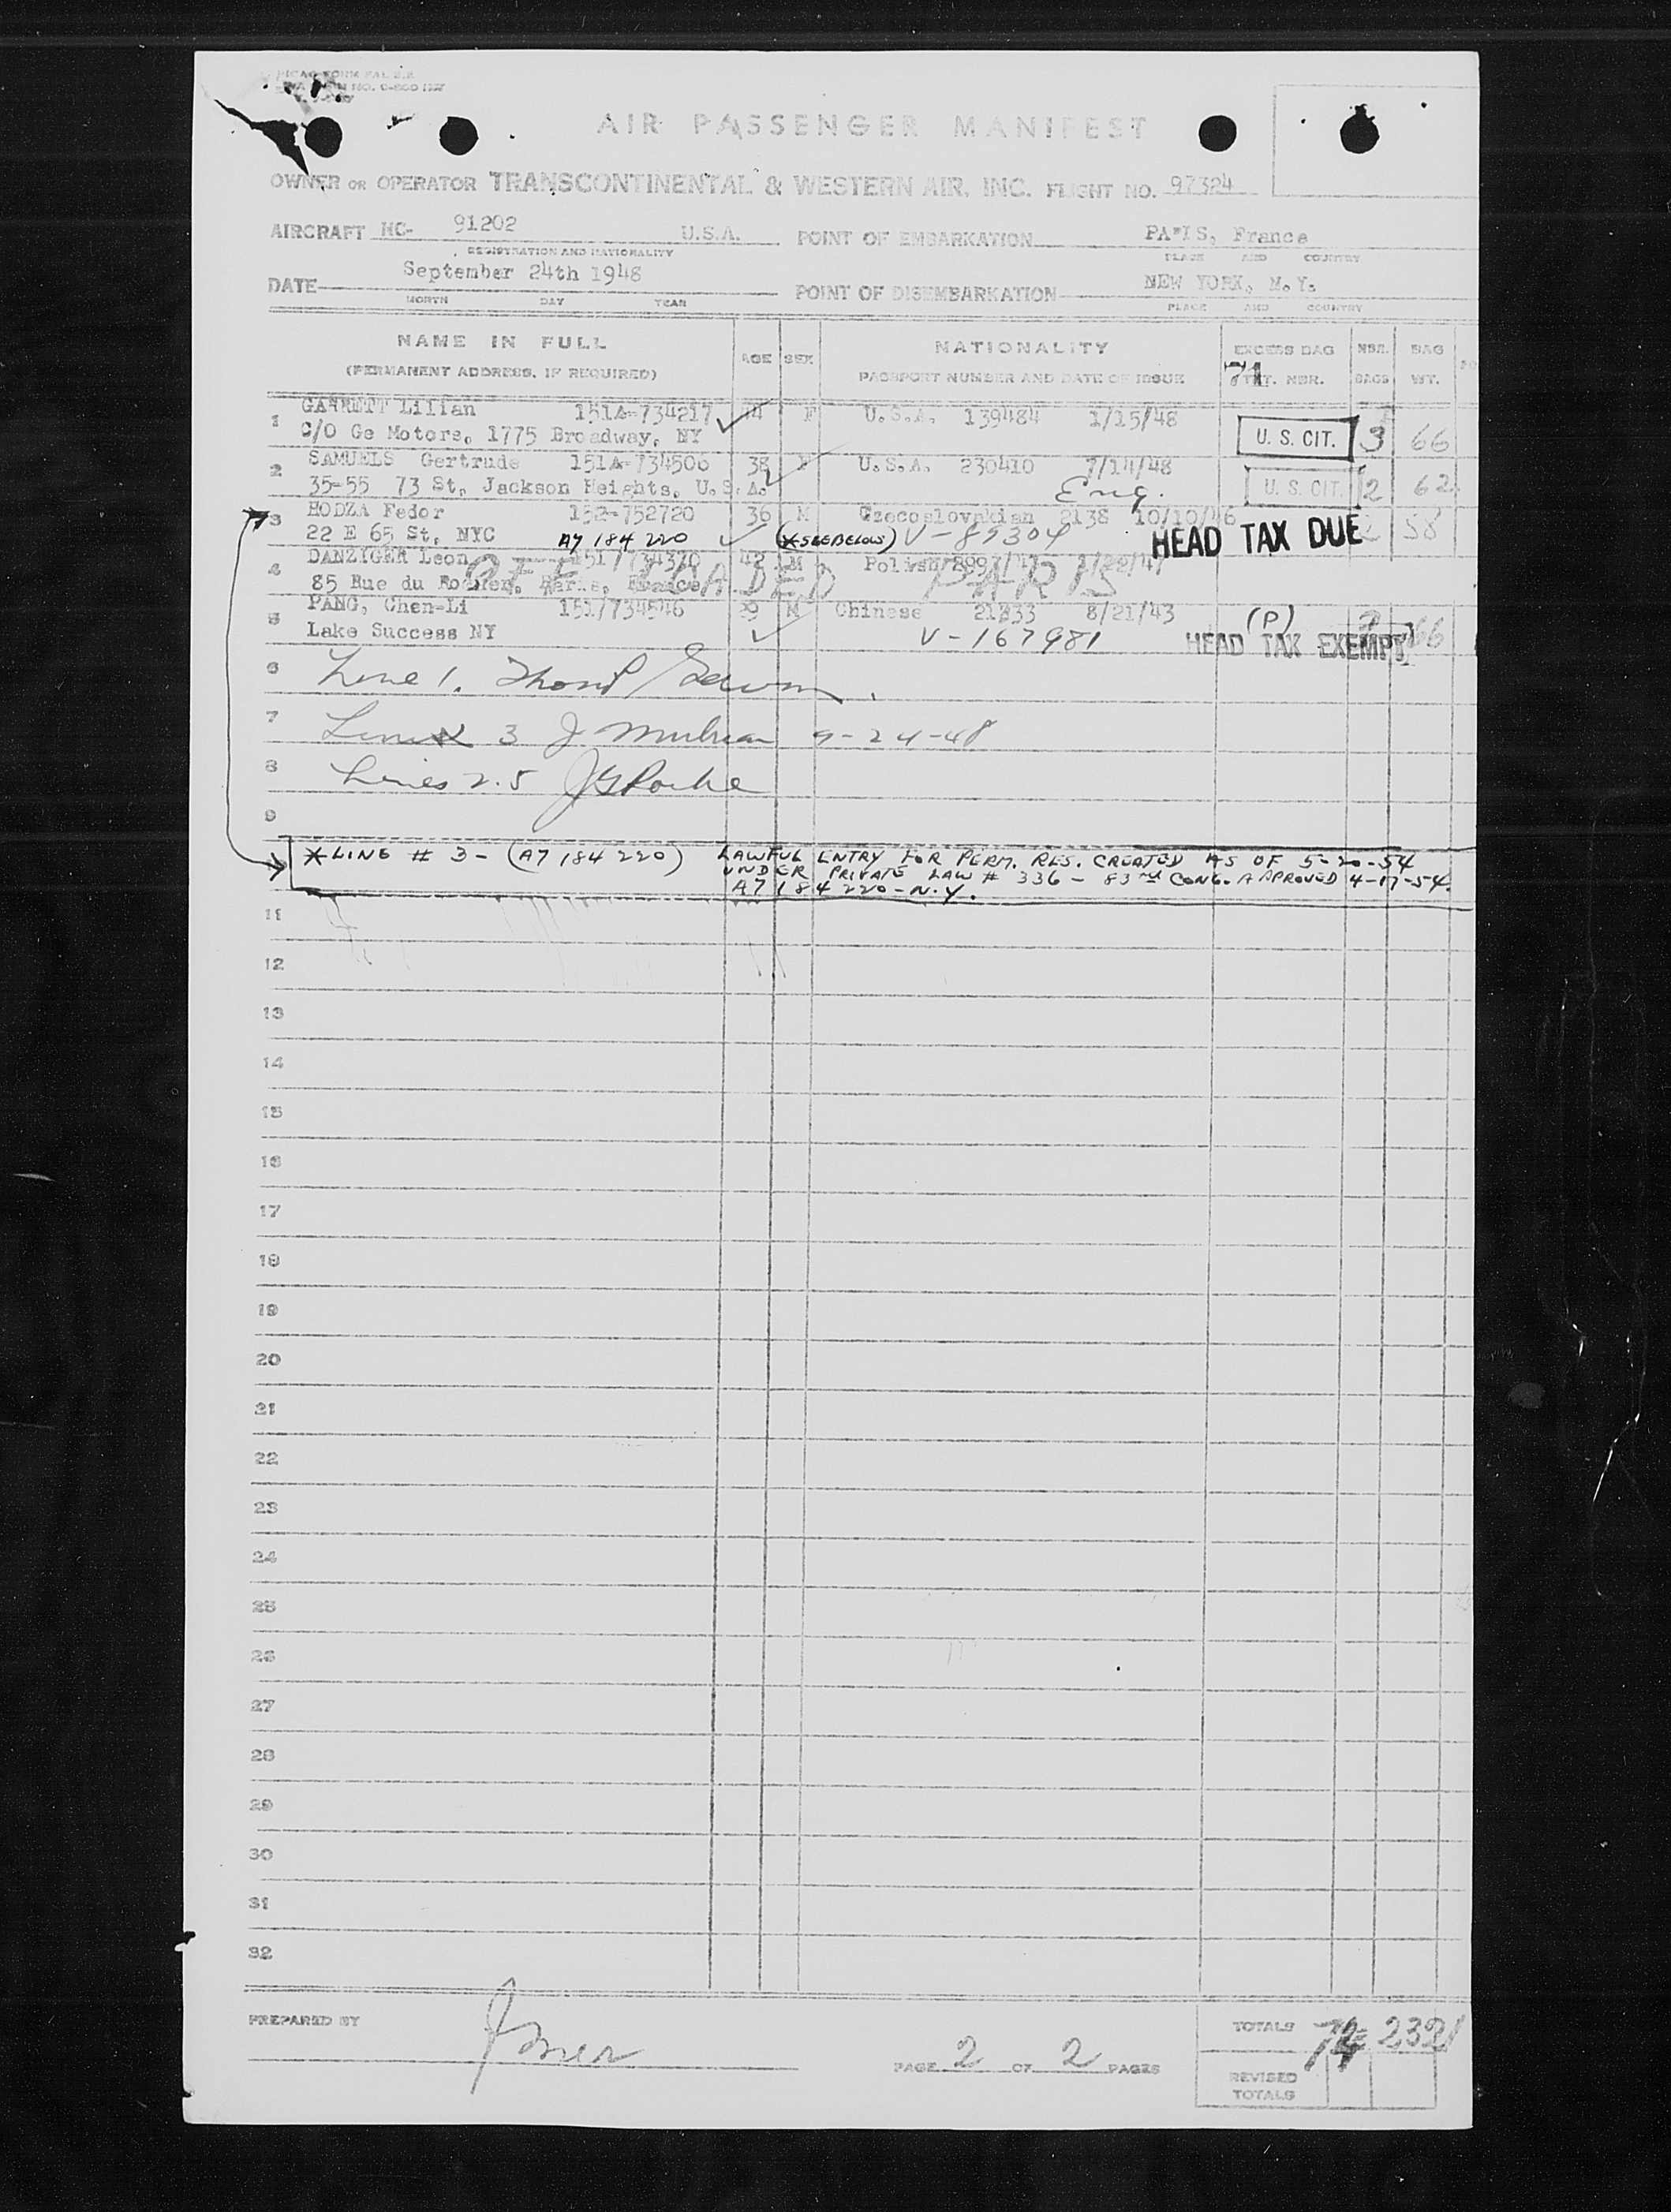 AIR PASSENGER MANIFEST
OWNER OR OPERATOR TRANSCONTINENTAL & WESTERN AIR, INC. FLIGHT NO. 97324
AIRCRAFT NC- 91202 U.S.A. POINT OF EMBARKATION PARIS, France
REGISTRATION AND NATIONALITY PLACE AND COUNTRY
DATE September 24th 1948 POINT OF DISEMBARKATION NEW YORK, N.Y.
MONTH DAY YEAR PLACE AND COUNTRY
NAME IN FULL AGE SEX NATIONALITY EXCESS BAG NBR. BAG
(PERMANENT ADDRESS, IF REQUIRED) PASSPORT NUMBER AND DATE OF ISSUE TKT. NBR. BAGS WT.
71
1 GARRETT Lilian 151A-734217 F U.S.A. 139484 1/15/48
C/O Ge Motors, 1775 Broadway, NY U. S. CIT. 3 66
2 SAMUELS Gertrude 151A-734506 38 F U.S.A. 230410 7/14/48
35-55 73 St, Jackson Heights, U.S.A. Eng. U. S. CIT. 2 62
3 HODZA Fedor 152-752720 36 M Czecoslovakian 2138 10/10/46
22 E 65 St, NYC A7 184 220 (*SEE BELOW) V-89304 HEAD TAX DUE 58
4 DANZIGER Leon 151/734370 42 M Polish
85 Rue du France
OFF LOADED PARIS
5 PANG, Chen-Li 151/734546 M Chinese 21333 8/21/43 (P)
Lake Success NY V-167981 HEAD TAX EXEMPT 66
6 Line 1.
7 Line 3 J 9-24-48
8 Lines 2.5
9
*LINE # 3- (A7 184 220) LAWFUL ENTRY FOR PERM. RES. CREATED AS OF 5-20-54
UNDER PRIVATE LAW # 336 - 83rd CONG. APPROVED 4-17-54.
A7 184 220-N.Y.
11
12
13
14
15
16
17
18
19
20
21
22
23
24
25
26
27
28
29
30
31
32
PREPARED BY
PAGE 2 OF 2 PAGES
TOTALS 2321
REVISED
TOTALS